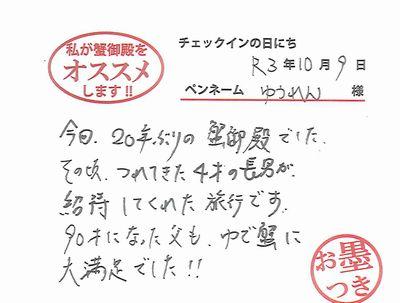 私が蟹御殿を
オススメ
します!!
チェックインの日にち
R3年10月9日
ペンネーム ゆうれん 様
今回、20年ぶりの蟹御殿でした。
その頃、つれてきた4才の長男が
招待してくれた旅行です。
90才になった父も、ゆで蟹に
大満足でした!!
お墨
つき